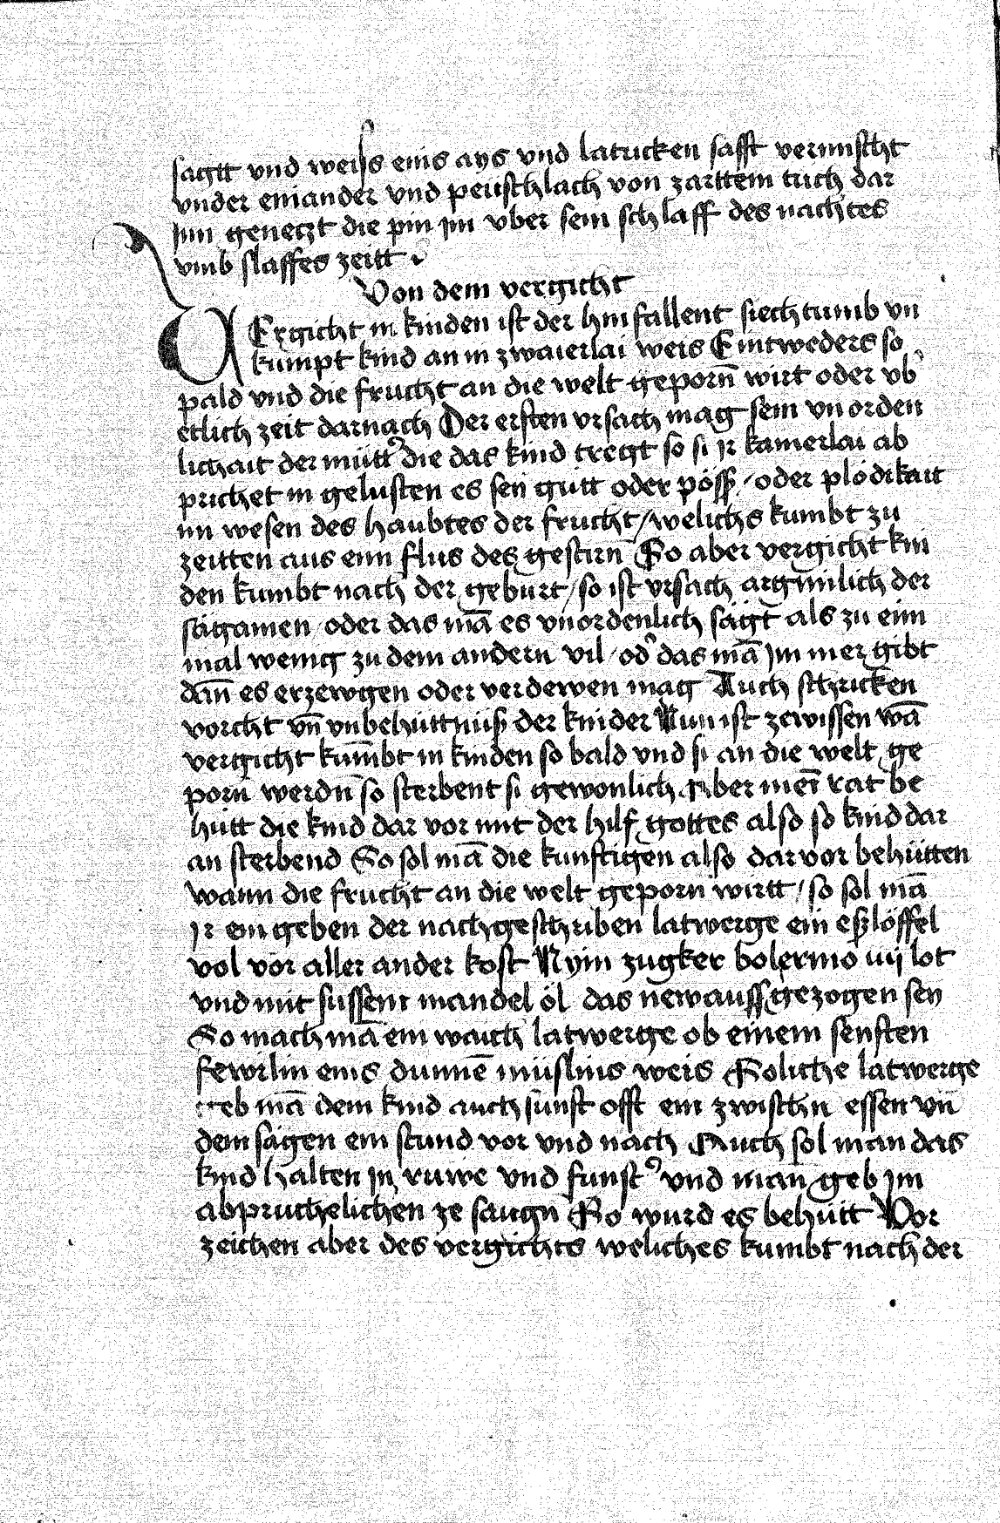 sagtt vnd weiss einis ays vnd latucken safft vermischt
vnder einander vnd peuschlach von zarttem tuch dar
Inn geneczt die pin im vber sein schlaff des nachtes
vmb slaffes zeitt
Von dem vergicht
VErgicht in kinden ist der hinfallent siechtumb vn
kumpt kind an in zwaierlai weis Eintweders so
pald vnd die frucht an die welt geporn̄ wirt oder vb̕
etlich zeit darnach Der ersten vrsach mag sein vnorden
lichait der mütt̕ die das kind tregt so si ir kamerlai ab
prichet in gelusten es sey gütt oder pöss / oder plödikait
im wesen des haubtes der frucht / welichs kumbt zu
zeitten aus eim flus des gestirn̄ So aber vergicht kin
den kumbt nach der geburt / so ist vrsach argmilich der
sägamen / oder das mā es vnordenlich sägt als zu eim
mal wenig zu dem andern vil / od̕ das mā im mer gibt
dan̄ es erzewgen oder verdewen mag Auch schricken
vorcht vn̄ vnbehüttnüß der kinder Nun ist zewissen wā
vergicht kūmbt in kinden so bald vnd si an die welt ge
porn werdn̄ so sterbent si gewonlich Aber mein̄ rat be
hütt die kind dar vor mit der hilf gottes also so kind dar
an sterbend So sol mā die kunftigen also darvor behütten
wann die frucht an die welt geporn wirtt / so sol mā
Ir ein geben der nachgeschriben latwerge ein eßlöffel
vol vor aller ander kost Nym zugker bolermō iiij lot
vnd mit süssem mandel öl das newauss gezogen sey
So mach mā ein waich latwerge ob einem senften
fewrlin eins dunnē müslins weis Soliche latwerge
geb mā dem kind auch sunst offt ein zwischn essen vn̄
dem sägen ein stund vor vnd nach Auch sol man das
kind halten in ruwe vnd sunst̕ vnd man geb im
abpruchelichen ze saugn̄ So wurd es behütt Vor
zeichen aber des vergichts weliches kumbt nach der